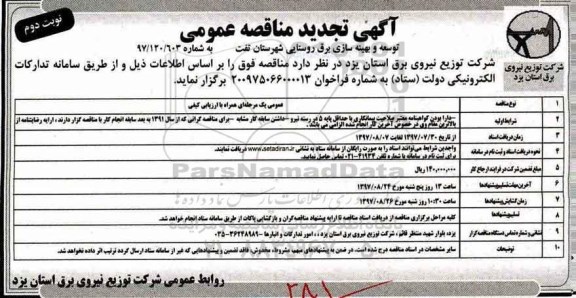 نوبت دوم
آگهی تجدید مناقصه عمومی
توسعه و بهینه سازی برق روستایی شهرستان تفت به شماره ۹۷/۱۲۰/۶۰۳
شرکت توزیع نیروی برق استان یزد در نظر دارد مناقصه فوق را بر اساس اطلاعات ذیل و از طریق سامانه تدارکات
الکترونیکی دولت (ستاد) به شماره فراخوان ۲۰۰۹۷۵۰۶۶۰۰۰۰۱۳ برگزار نماید.
شرکت توزیع نیروی
برق استان یزد
۱ نوع مناقصه عمومی یک مرحله‌ای همراه با ارزیابی کیفی
۲ شرایط اولیه -دارا بودن گواهینامه معتبر صلاحیت پیمانکاری با حداقل پایه ۵ در رسته نیرو -داشتن سابقه کار مشابه -برای مناقصه گرانی که از سال ۱۳۹۱ به بعد سابقه انجام کار با مناقصه گزار دارند، ارایه رضایتنامه از
بالاترین مقام وی در خصوص آخرین کار انجام شده الزامی می باشد.
۳ زمان دریافت اسناد از تاریخ ۱۳۹۷/۰۷/۳۰ لغایت ۱۳۹۷/۰۸/۰۷
۴ نحوه دریافت اسناد و ثبت نام در سامانه واجدین شرایط می‌توانند اسناد را به صورت رایگان از سامانه ستاد به نشانی www.setadiran.ir دریافت نمایند.
برای ثبت نام در سامانه با شماره تلفن ۴۱۹۳۴-۰۲۱ تماس حاصل نمایید.
۵ مبلغ تضمین شرکت در فرآیند ارجاع کار ۱۴۰,۰۰۰,۰۰۰ ریال
۶ آخرین مهلت تسلیم پیشنهادها ساعت ۱۳ روز پنج شنبه مورخ ۱۳۹۷/۰۸/۲۴
۷ زمان گشایش پیشنهادها ساعت ۱۰:۳۰ روز شنبه مورخ ۱۳۹۷/۰۸/۲۶
۸ تسلیم پیشنهادها کلیه مراحل برگزاری مناقصه از دریافت اسناد مناقصه تا ارایه پیشنهاد مناقصه گران و بازگشایی پاکات از طریق سامانه ستاد انجام خواهد شد.
۹ نشانی و شماره تماس دستگاه مناقصه گزار یزد، بلوار شهید منتظر قائم، شرکت توزیع نیروی برق استان یزد، امور تدارکات و انبارها -۳۶۲۴۸۹۸۹-۰۳۵
۱۰ توضیحات سایر مشخصات در اسناد مناقصه درج شده است. در ضمن به پیشنهادهای مبهم، مشروط، مخدوش، فاقد تضمین و پیشنهادهایی که غیر از سامانه ستاد ارسال گردد ترتیب اثر داده نخواهد شد.
روابط عمومی شرکت توزیع نیروی برق استان یزد
ParsNamadData